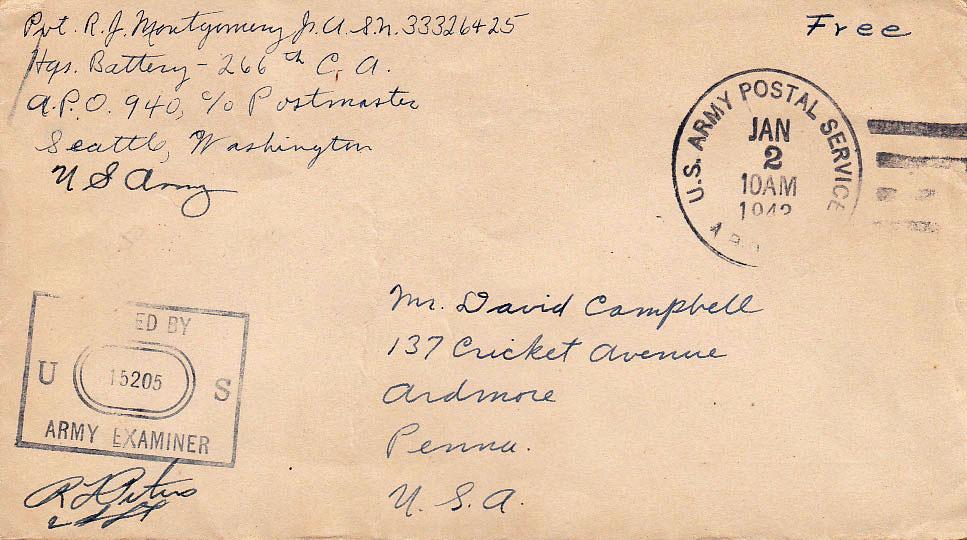 Pvt. R. J. Montgomery Jr. A.S.N. 33326425
Hqs. Battery - 266th C. A.
A.P.O. 940, c/o Postmaster
Seattle, Washington
U S Army
Free
U.S. ARMY POSTAL SERVICE
JAN
2
10AM
Mr. David Campbell
137 Cricket Avenue
Ardmore
Penna.
U. S. A.
ED BY
U 15205 S
ARMY EXAMINER